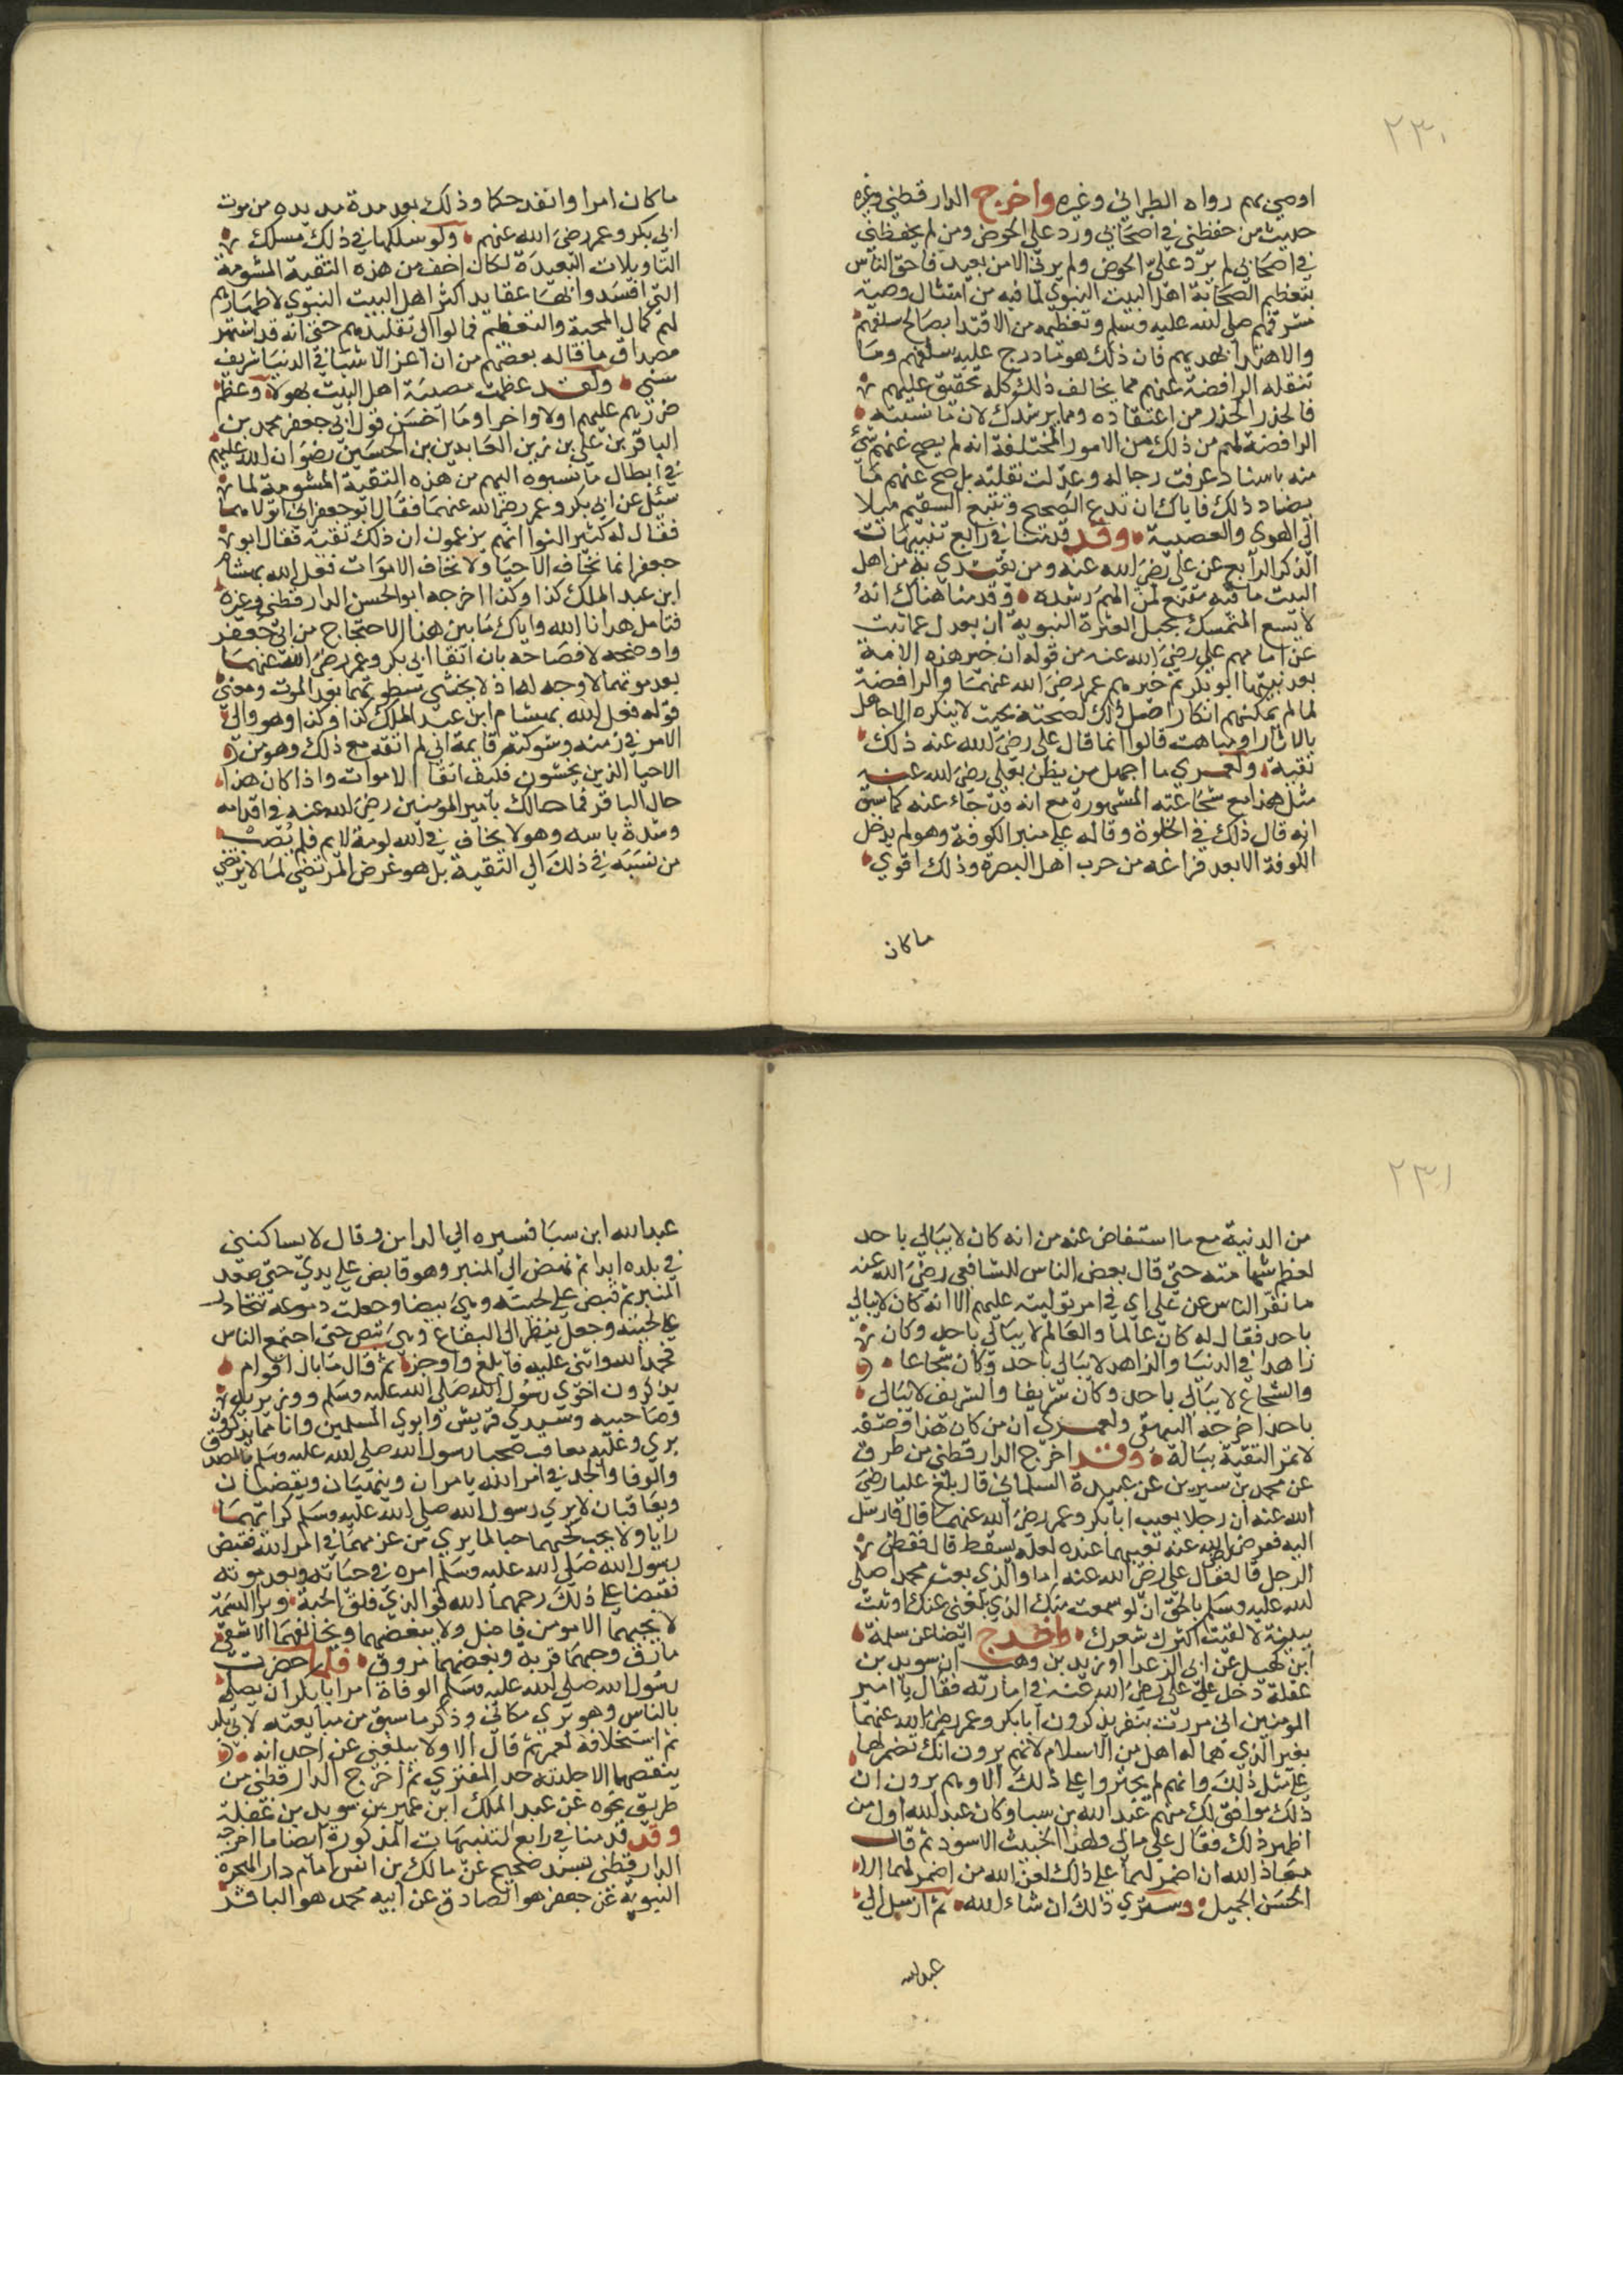 ٢٣٠
اوصي بهم رواه الطبراني وغيره واخرج الدارقطني وغيره
حديث من حفظني في اصحابي ورد علي الحوض ومن لم يحفظني
في اصحابي لم يرد علي الحوض ولم يرني الا من بعيد فاحق الناس
بتعظيم الصحابة اهل البيت النبوي لما فيه من امتثال وصية
مشرفهم صلي الله عليه وسلم وتعظيمه من الاقتدا بصالح سلفهم
والاهتدا بهديهم فان ذلك هو ما درج عليه سلفهم وما
تنقله الرافضة عنهم مما يخالف ذلك كله تحقيق عليهم
فالحذر الحذر من اعتقاده ومما يرشدك لان ما نسبته
الرافضة لهم من ذلك من الامور المختلفة انه لم يصح عنهم شئ
منه باسناد عرفت رجاله وعدلت نقلته بل صح عنهم ما
يضاد ذلك فاياك ان تدع الصحيح وتتبع السقيم ميلا
الي الهوي والعصبية وقد قدمنا في رابع تنبيهات
الذكر الرابع عن علي رضي الله عنه ومن يقتدي به من اهل
البيت ما فيه مقنع لمن الهم رشده وقدمنا هناك انه
لا يسع المتمسك بحبل العترة النبوية ان يعدل عما ثبت
عن امامهم علي رضي الله عنه من قوله ان خير هذه الامة
بعد نبيها ابو بكر ثم خيرهم عمر رضي الله عنهما والرافضة
لما لم يمكنهم انكار اصل ذلك لصحته بحيث لا ينكره الا جاهل
بالاثار او مباهت قالوا انما قال علي رضي الله عنه ذلك
تقية ولعمري ما اجهل من يظن بعلي رضي الله عنه
مثل هذا مع شجاعته المشهورة مع انه قد جاء عنه كما سبق
انه قال ذلك في الخلوة وقاله علي منبر الكوفة وهو لم يدخل
الكوفة الا بعد فراغه من حرب اهل البصرة وذلك اقوي
ما كان
ما كان امرا وانفذ حكما وذلك بعد مدة مديده من موت
ابي بكر وعمر رضي الله عنهم ولو سلكوا في ذلك مسلك
التاويلات البعيدة لكان اخف من هذه التقية المشومة
التي افسدوا بها عقايد اكثر اهل البيت النبوي لاظهارهم
لهم كمال المحبة والتعظيم فمالوا الي تقليدهم حتي انه قد اشتهر
مصداق ما قاله بعضهم من ان اعز الاشيا في الدنيا شريف
سني ولقد عظمت مصيبة اهل البيت بهولا وعظم
ضررهم عليهم اولا واخرا وما احسن قول ابي جعفر محمد بن
الباقر بن علي بن زين العابدين بن الحسين رضوان الله عليهم
في ابطال ما نسبوه اليهم من هذه التقية المشومة لما
سئل عن ابي بكر وعمر رضي الله عنهما فقال ابو جعفر اني اتولاهما
فقال له كثير النوا انهم يزعمون ان ذلك تقية فقال ابو
جعفر انما تخاف الاحيا ولا تخاف الاموات فعل الله بهشام
ابن عبد الملك كذا وكذا اخرجه ابو الحسن الدارقطني وغيره
فتامل هدانا الله واياك ما بين هذا الاحتجاج من ابي جعفر
واوضحه لافصاحه بان اتقا ابي بكر وعمر رضي الله عنهما
بعد موتهما لا وجه له اذ لا يخشي سطوتهما بعد الموت ومعني
قوله فعل الله بهشام ابن عبد الملك كذا وكذا وهو والي
الامر في زمنه وشوكته قايمة اني لم اتقه مع ذلك وهو من
الاحيا الذين يخشون فكيف اتقا الاموات واذا كان هذا
حال الباقر فما حالك بامير المومنين رضي الله عنه في اقدامه
وشدة باسه وهو لا يخاف في الله لومة لايم فلم يصب
من نسبه في ذلك الي التقية بل هو غرض المرتضي لما لا يرتضي
٢٣١
من الدنية مع ما استفاض عنه من انه كان لا يبالي باحد
لعظم شهامته حتي قال بعض الناس للشافعي رضي الله عنه
ما نفر الناس عن علي اي في امر توليته عليهم الا انه كان لا يبالي
باحد فقال له كان عالما والعالم لا يبالي باحد وكان
زاهدا في الدنيا والزاهد لا يبالي باحد وكان شجاعا
والشجاع لا يبالي باحد وكان شريفا والشريف لا يبالي
باحد اخرجه البيهقي ولعمري ان من كان هذا وصفه
لا تمر التقية بباله وقد اخرج الدارقطني من طرق
عن محمد بن سيرين عن عبيدة السلماني قال بلغ عليا رضي
الله عنه ان رجلا يعيب ابا بكر وعمر رضي الله عنهما قال فارسل
اليه فعرض الله عنه تعيبهما عنده لعله يسقط قال ففطن
الرجل قال فقال علي رضي الله عنه اما والذي بعث محمدا صلي
الله عليه وسلم بالحق ان لو سمعت منك الذي بلغني عنك او ثبت
ببينة لالقيت اكثرك شعرك واخرج ايضا عن سلمة
ابن كهيل عن ابي الزعرا او زيد بن وهب ان سويد بن
غفلة دخل علي علي رضي الله عنه في امارته فقال يا امير
المومنين اني مررت بنفر يذكرون ابا بكر وعمر رضي الله عنهما
بغير الذي هما له اهل من الاسلام لانهم يرون انك تضمر لهما
علي مثل ذلك وانهم لم يجتروا علي ذلك الا وهم يرون ان
ذلك موافق لك منهم عبد الله بن سبا وكان عبد الله اول من
اظهر ذلك فقال علي مالي ولهذا الخبيث الاسود ثم قال
معاذ الله ان اضمر لهما علي ذلك لعن الله من اضمر لهما الا
الحسن الجميل وستري ذلك ان شاء الله ثم ارسل الي
عبدالله
عبدالله ابن سبا فسيره الي المداين وقال لا يساكنني
في بلده ابدا ثم نهض الي المنبر وهو قابض علي يدي حتي صعد
المنبر ثم قبض علي لحيته وهي بيضا وجعلت دموعه تتحادر
علي لحيته وجعل ينظر الي البقاع حتي اجتمع الناس
فحمد الله واثني عليه فابلغ واوجز ثم قال ما بال اقوام
يذكرون اخوي رسول الله صلي الله عليه وسلم ووزيريه
وصاحبيه وسيدي قريش وابوي المسلمين وانا مما يذكرون
بري وعليه معاقب صحبا رسول الله صلي الله عليه وسلم بالصدق
والوفا والجد في امر الله يامران وينهيان ويقضيان
ويعاقبان لا يري رسول الله صلي الله عليه وسلم كرايهما
رايا ولا يحب كحبهما حبا لما يري من عزمهما في امر الله فقبض
رسول الله صلي الله عليه وسلم امره في حياته وبعد موته
فقبضا علي ذلك رحمهما الله فوالذي فلق الحبة وبرا النسمة
لا يحبهما الا مومن فاضل ولا يبغضهما ويخالفهما الا شقي
مارق وحبهما قربة وبغضهما مروق فلما حضرت
رسول الله صلي الله عليه وسلم الوفاة امر ابا بكر ان يصلي
بالناس وهو يري مكاني وذكر ما سبق من مبايعته لابي بكر
ثم استخلافه لعمر ثم قال الا ولا يبلغني عن احد انه
ينقصهما الا جلدته حد المفتري ثم اخرج الدارقطني من
طريق نحوه عن عبد الملك ابن عمير بن سويد بن غفلة
وقد قدمنا في رابع التنبيهات المذكورة ايضا ما اخرجه
الدارقطني بسند صحيح عن مالك بن انس امام دار الهجرة
النبوية عن جعفر هو الصادق عن ابيه محمد هو الباقر